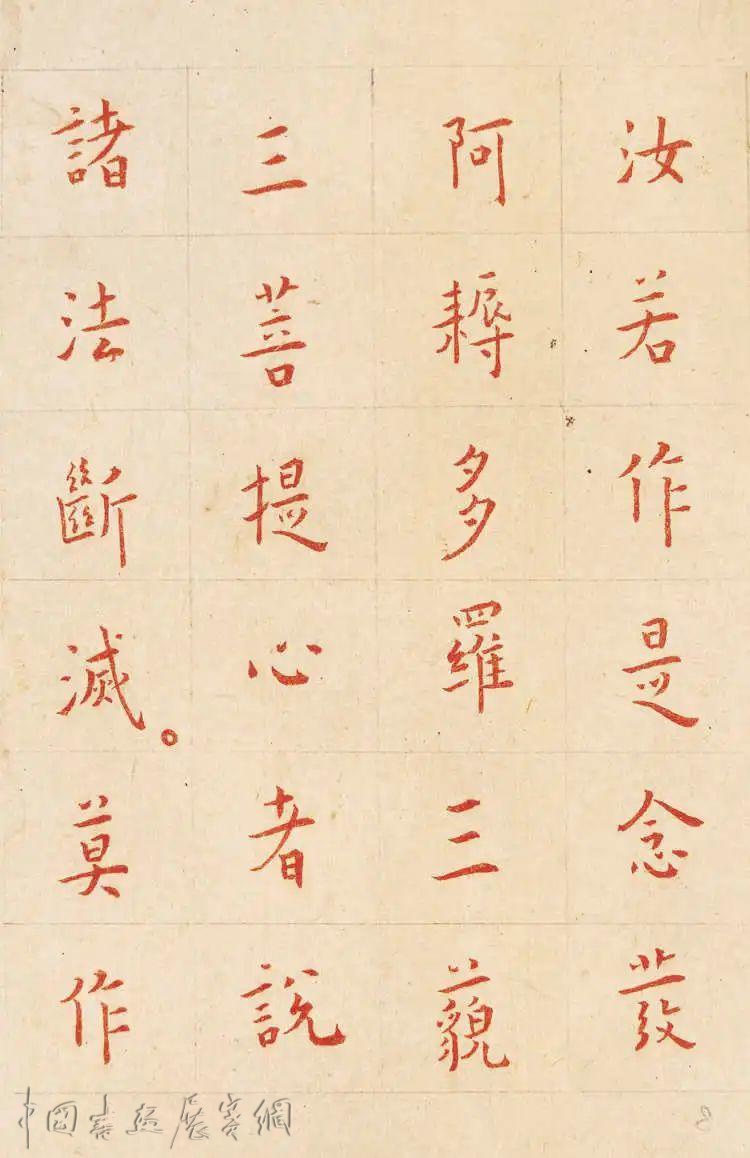 汝若作是念發
阿耨多羅三藐
三菩提心者說
諸法斷滅。莫作
中國書法展賽網